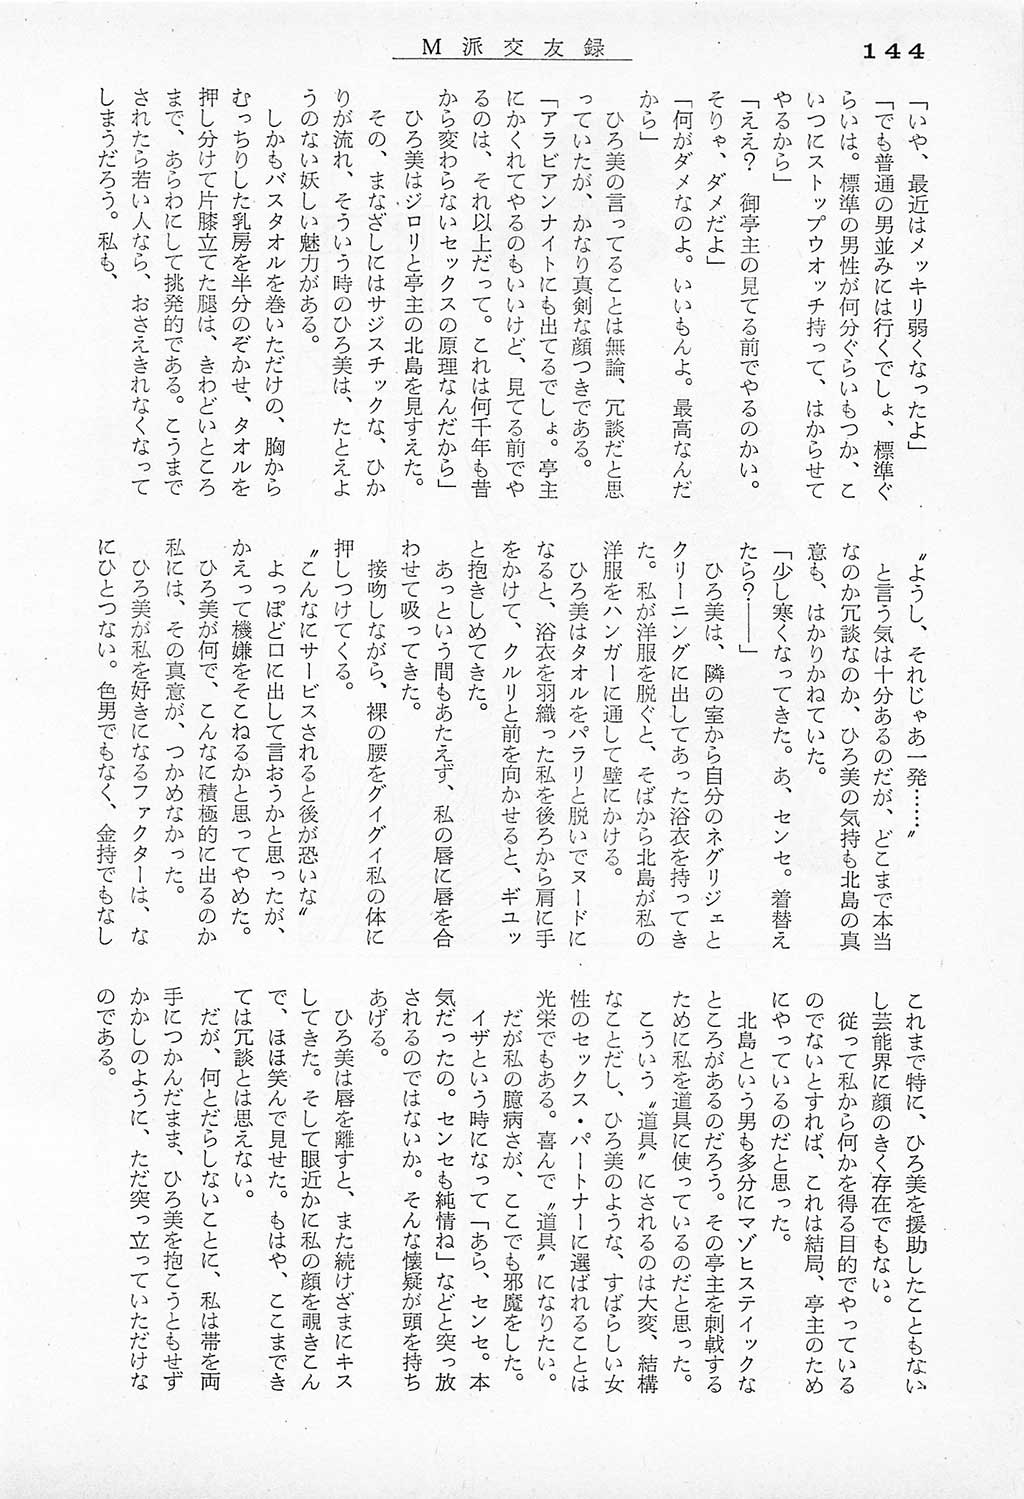 M派交友録
144
「いや、最近はメッキリ弱くなったよ」
「でも普通の男並みには行くでしょ、標準ぐ
らいは。標準の男性が何分ぐらいもつか、こ
いつにストップウオッチ持って、はからせて
やるから」
「ええ?　御亭主の見てる前でやるのかい。
そりゃ、ダメだよ」
「何がダメなのよ。いいもんよ。最高なんだ
から」
　ひろ美の言ってることは無論、冗談だと思
っていたが、かなり真剣な顔つきである。
「アラビアンナイトにも出てるでしょ。亭主
にかくれてやるのもいいけど、見てる前でや
るのは、それ以上だって。これは何千年も昔
から変わらないセックスの原理なんだから」
　ひろ美はジロリと亭主の北島を見すえた。
　その、まなざしにはサジスチックな、ひか
りが流れ、そういう時のひろ美は、たとえよ
うのない妖しい魅力がある。
　しかもバスタオルを巻いただけの、胸から
むっちりした乳房を半分のぞかせ、タオルを
押し分けて片膝立てた腿は、きわどいところ
まで、あらわにして挑発的である。こうまで
されたら若い人なら、おさえきれなくなって
しまうだろう。私も、
〝ようし、それじゃあ一発……〟
　と言う気は十分あるのだが、どこまで本当
なのか冗談なのか、ひろ美の気持も北島の真
意も、はかりかねていた。
「少し寒くなってきた。あ、センセ。着替え
たら?――」
　ひろ美は、隣の室から自分のネグリジェと
クリーニングに出してあった浴衣を持ってき
た。私が洋服を脱ぐと、そばから北島が私の
洋服をハンガーに通して壁にかける。
　ひろ美はタオルをパラリと脱いでヌードに
なると、浴衣を羽織った私を後ろから肩に手
をかけて、クルリと前を向かせると、ギユッ
と抱きしめてきた。
　あっという間もあたえず、私の唇に唇を合
わせて吸ってきた。
　接吻しながら、裸の腰をグイグイ私の体に
押しつけてくる。
〝こんなにサービスされると後が恐いな〟
　よっぽど口に出して言おうかと思ったが、
かえって機嫌をそこねるかと思ってやめた。
　ひろ美が何で、こんなに積極的に出るのか
私には、その真意が、つかめなかった。
　ひろ美が私を好きになるファクターは、な
にひとつない。色男でもなく、金持でもなし
これまで特に、ひろ美を援助したこともない
し芸能界に顔のきく存在でもない。
　従って私から何かを得る目的でやっている
のでないとすれば、これは結局、亭主のため
にやっているのだと思った。
　北島という男も多分にマゾヒスティックな
ところがあるのだろう。その亭主を刺戟する
ために私を道具に使っているのだと思った。
　こういう〝道具〟にされるのは大変、結構
なことだし、ひろ美のような、すばらしい女
性のセックス・パートナーに選ばれることは
光栄でもある。喜んで〝道具〟になりたい。
　だが私の臆病さが、ここでも邪魔をした。
　イザという時になって「あら、センセ。本
気だったの。センセも純情ね」などと突っ放
されるのではないか。そんな懐疑が頭を持ち
あげる。
　ひろ美は唇を離すと、また続けざまにキス
してきた。そして眼近かに私の顔を覗きこん
で、ほほ笑んで見せた。もはや、ここまでき
ては冗談とは思えない。
　だが、何とだらしないことに、私は帯を両
手につかんだまま、ひろ美を抱こうともせず
かかしのように、ただ突っ立っていただけな
のである。